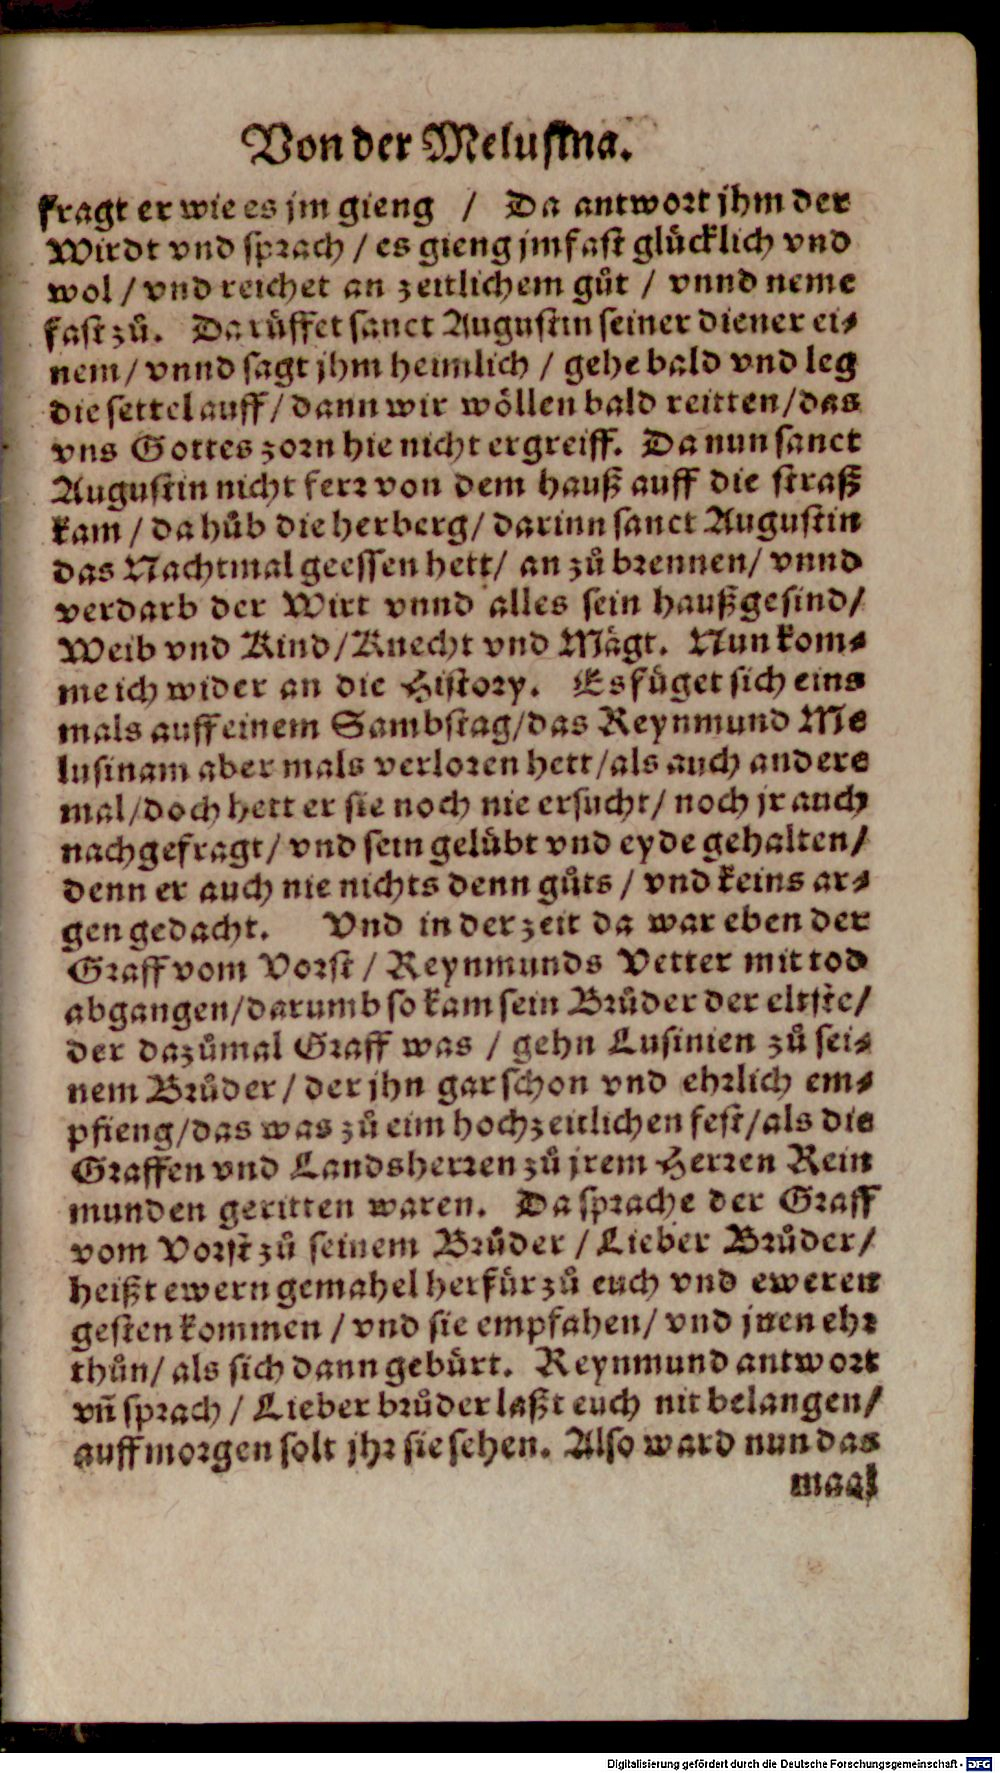 Von der Melusina.
fragt er wie es jm gieng / Da antwort jhm der
Wirdt vnd sprach / es gieng jm fast glücklich vnd
wol / vnd reichet an zeitlichem gůt / vnnd neme
fast zů. Da růffet sanct Augustin seiner diener ei-
nem / vnnd sagt jhm heimlich / gehe bald vnd leg
die settel auff / dann wir wöllen bald reitten / das
vns Gottes zorn hie nicht ergreiff. Da nun sanct
Augustin nicht ferr von dem hauß auff die straß
kam / da hůb die herberg / darinn sanct Augustin
das Nachtmal geessen hett / an zů brennen / vnnd
verdarb der Wirt vnnd alles sein haußgesind /
Weib vnd Kind / Knecht vnd Mägt. Nun kom-
me ich wider an die History. Es füget sich eins
mals auff einem Sambstag / das Reynmund Me
lusinam aber mals verloren hett / als auch andere
mal / doch hett er sie noch nie ersucht / noch jr auch
nachgefragt / vnd sein gelübt vnd eyde gehalten /
denn er auch nie nichts denn gůts / vnd keins ar-
gen gedacht. Vnd in der zeit da war eben der
Graff vom Vorst / Reynmunds Vetter mit tod
abgangen / darumb so kam sein Brůder der eltste /
der dazůmal Graff was / gehn Lusinien zů sei-
nem Brůder / der jhn gar schon vnd ehrlich em-
pfieng / das was zů eim hochzeitlichen fest / als die
Graffen vnd Landsherren zů jrem Herren Rein
munden geritten waren. Da sprache der Graff
vom Vorst zů seinem Brůder / Lieber Brůder /
heißt ewern gemahel herfür zů euch vnd eweren
gesten kommen / vnd sie empfahen / vnd jnen ehr
thůn / als sich dann gebürt. Reynmund antwort
vñ sprach / Lieber brůder laßt euch nit belangen /
auff morgen solt jhr sie sehen. Also ward nun das
maal
Digitalisierung gefördert durch die Deutsche Forschungsgemeinschaft - DFG